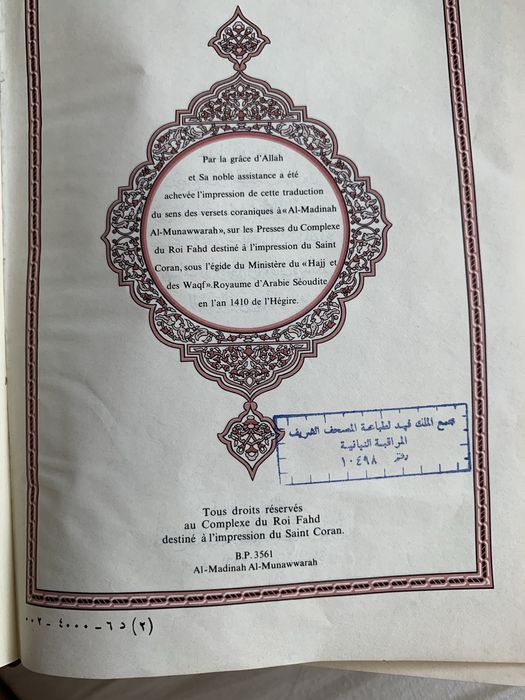 Par la grâce d'Allah
et Sa noble assistance a été
achevée l'impression de cette traduction
du sens des versets coraniques à «Al-Madinah
Al-Munawwarah», sur les Presses du Complexe
du Roi Fahd destiné à l'impression du Saint
Coran, sous l'égide du Ministère du «Hajj et
des Waqf». Royaume d'Arabie Séoudite
en l'an 1410 de l'Hégire.
مجمع الملك فهد لطباعة المصحف الشريف
المراقبة النهائية
١٠٤٩٨
Tous droits réservés
au Complexe du Roi Fahd
destiné à l'impression du Saint Coran.
B.P. 3561
Al-Madinah Al-Munawwarah